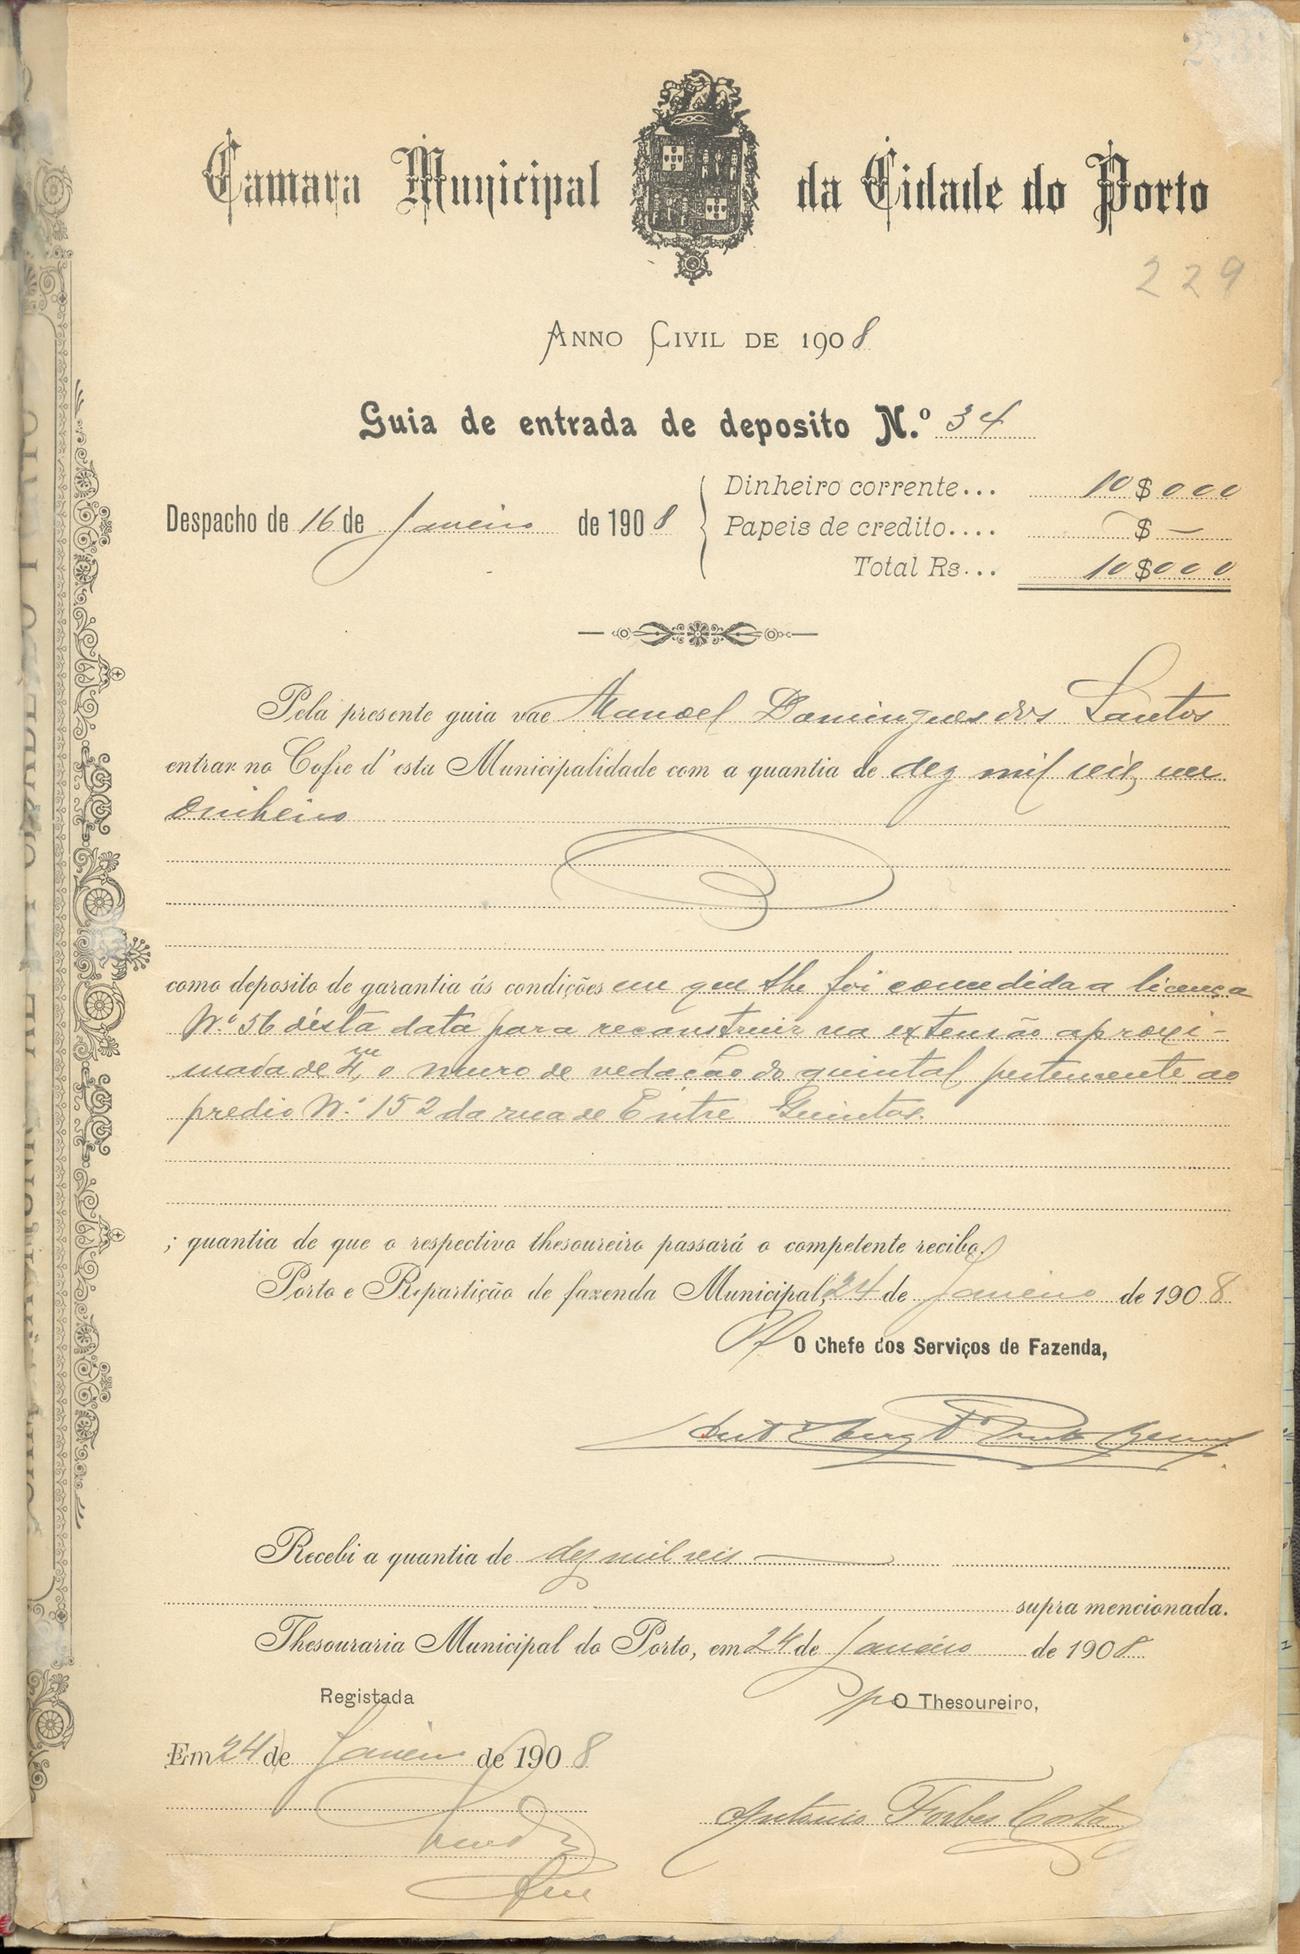 Camara Municipal da Cidade do Porto
229
Anno Civil de 1908
Guia de entrada de deposito N.º 34
Despacho de 16 de Janeiro de 1908
Dinheiro corrente... 10$000
Papeis de credito.... $—
Total Rs... 10$000
Pela presente guia vae Manoel Domingues dos Santos
entrar no Cofre d'esta Municipalidade com a quantia de dez mil reis, em
dinheiro
como deposito de garantia ás condições em que lhe foi concedida a licença
Nº 56 désta data para reconstruir na extensão aproxi-
mada de 4,m o muro de vedação do quintal, pertencente ao
predio Nº 152 da rua de Entre Quintas.
; quantia de que o respectivo thesoureiro passará o competente recibo.
Porto e Repartição de fazenda Municipal, 24 de Janeiro de 1908
O Chefe dos Serviços de Fazenda,
Recebi a quantia de dez mil reis
supra mencionada.
Thesouraria Municipal do Porto, em 24 de Janeiro de 1908
Registada
O Thesoureiro,
Em 24 de Janeiro de 1908
Antonio Forbes Costa